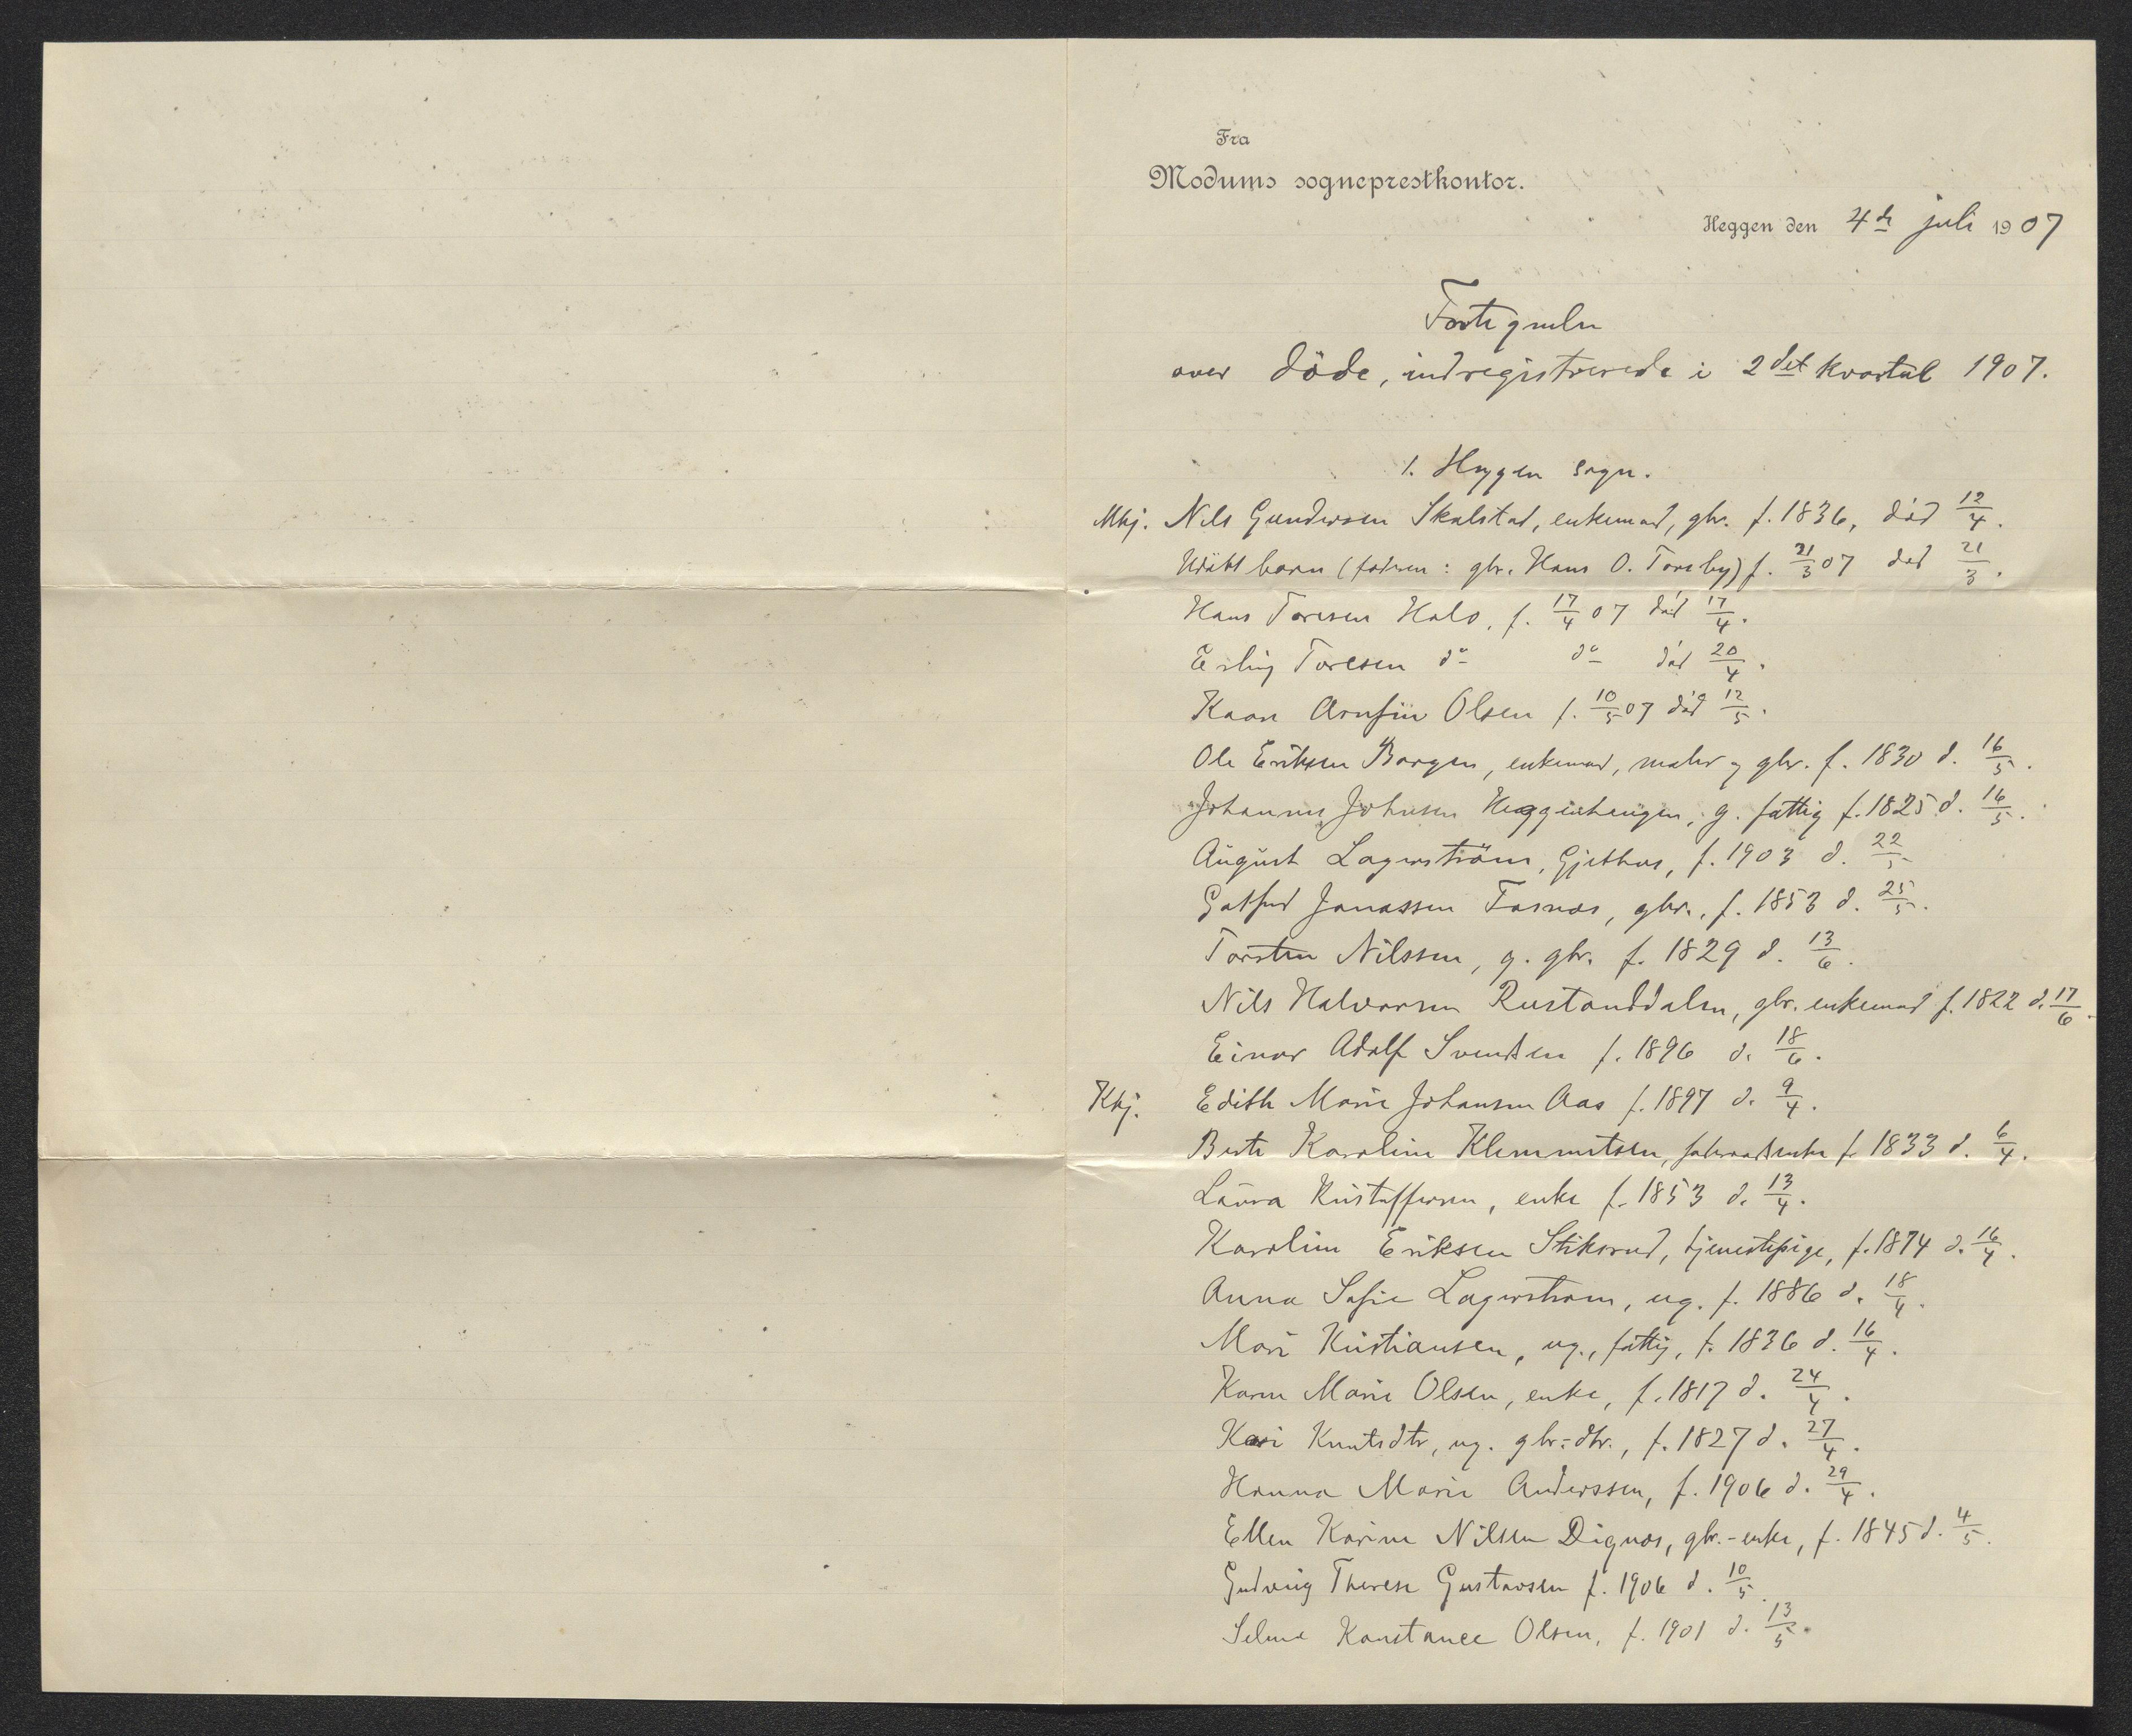 Fra
Modums sogneprestkontor.
Heggen den 4de juli 1907
Fortegnelse
over döde, indregistrerede i 2det kvartal 1907.
1. Heggen sogn.
Mkj. Nils Gundersen Skalstad, enkemand, gbr. f. 1836, död 12/4.
Udöbt barn (faderen: gbr. Hans O. Toreby) f. 21/3 07 död 21/3.
Hans Toresen Holo, f. 17/4 07 död 17/4.
Erling Toresen do do död 20/4.
Kaare Arnfin Olsen f. 10/5 07 död 12/5.
Ole Eriksen Borgen, enkemand, maler og gbr. f. 1830 d. 16/5.
Johannes Johnsen Heggenhaugen, g. fattig f. 1825 d. 16/5.
August Lagerström, Gjethus, f. 1903 d. 22/5
Gulbrand Jonassen Fosnæs, gbr., f. 1853 d. 25/5.
Torsten Nilssen, g. gbr. f. 1829 d. 13/6.
Nils Halvorsen Rustanddalen, gbr. enkemand f. 1822 d. 17/6.
Einar Adolf Svendsen f. 1896 d. 18/6.
Kkj. Edith Marie Johansen Aas f. 1897 d. 9/4.
Berte Karoline Klemmetsen, f. 1833 d. 6/4.
Laura Kristoffersen, enke f. 1853 d. 13/4.
Karoline Eriksen Stiksrud, tjenestepige, f. 1874 d. 16/4.
Anna Sofie Lagerstrøm, ug. f. 1886 d. 18/4.
Mari Kristiansen, ug., fattig, f. 1836 d. 16/4.
Karen Marie Olsen, enke, f. 1817 d. 24/4.
Kari Knutsdtr, ug. gbr.-dtr., f. 1827 d. 27/4.
Hanna Marie Anderssen, f. 1906 d. 29/4.
Ellen Karine Nilsen Dignæs, gbr.-enke, f. 1845 d. 4/5.
Gudveig Therese Gustavsen f. 1906 d. 10/5.
Selma Konstance Olsen, f. 1901 d. 13/5.